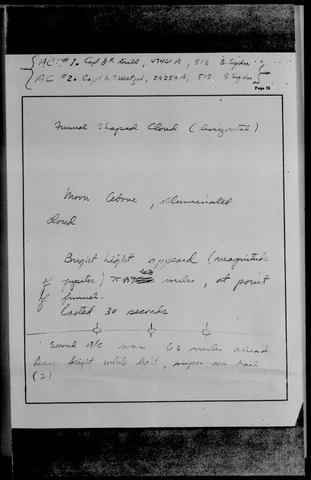 AC #1. Capt B F. 47461A, 513 B. Sqdn
AC #2. Capt 29259A, 513 B. Sqdn
Page 10
Funnel Shaped Cloud (horizontal)
Moon above, illuminated
cloud
Bright light appeared (magnitude
of jupiter) 63 miles, at point
of funnel.
Lasted 30 seconds
Second A/C was 63 miles ahead
bright white light, on track
(2)